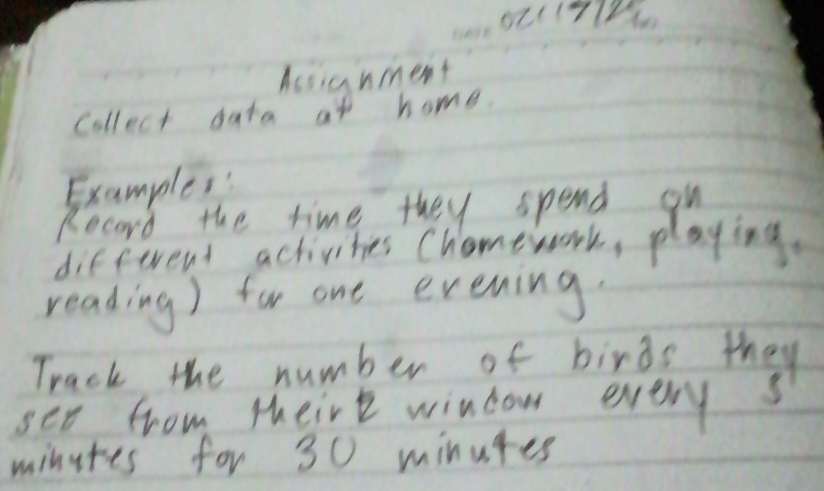 Assignment
Collect data at home.
Examples:
Record the time they spend on
different activities (homework, playing,
reading) for one evening.
Track the number of birds they
see from their window every 5
minutes for 30 minutes